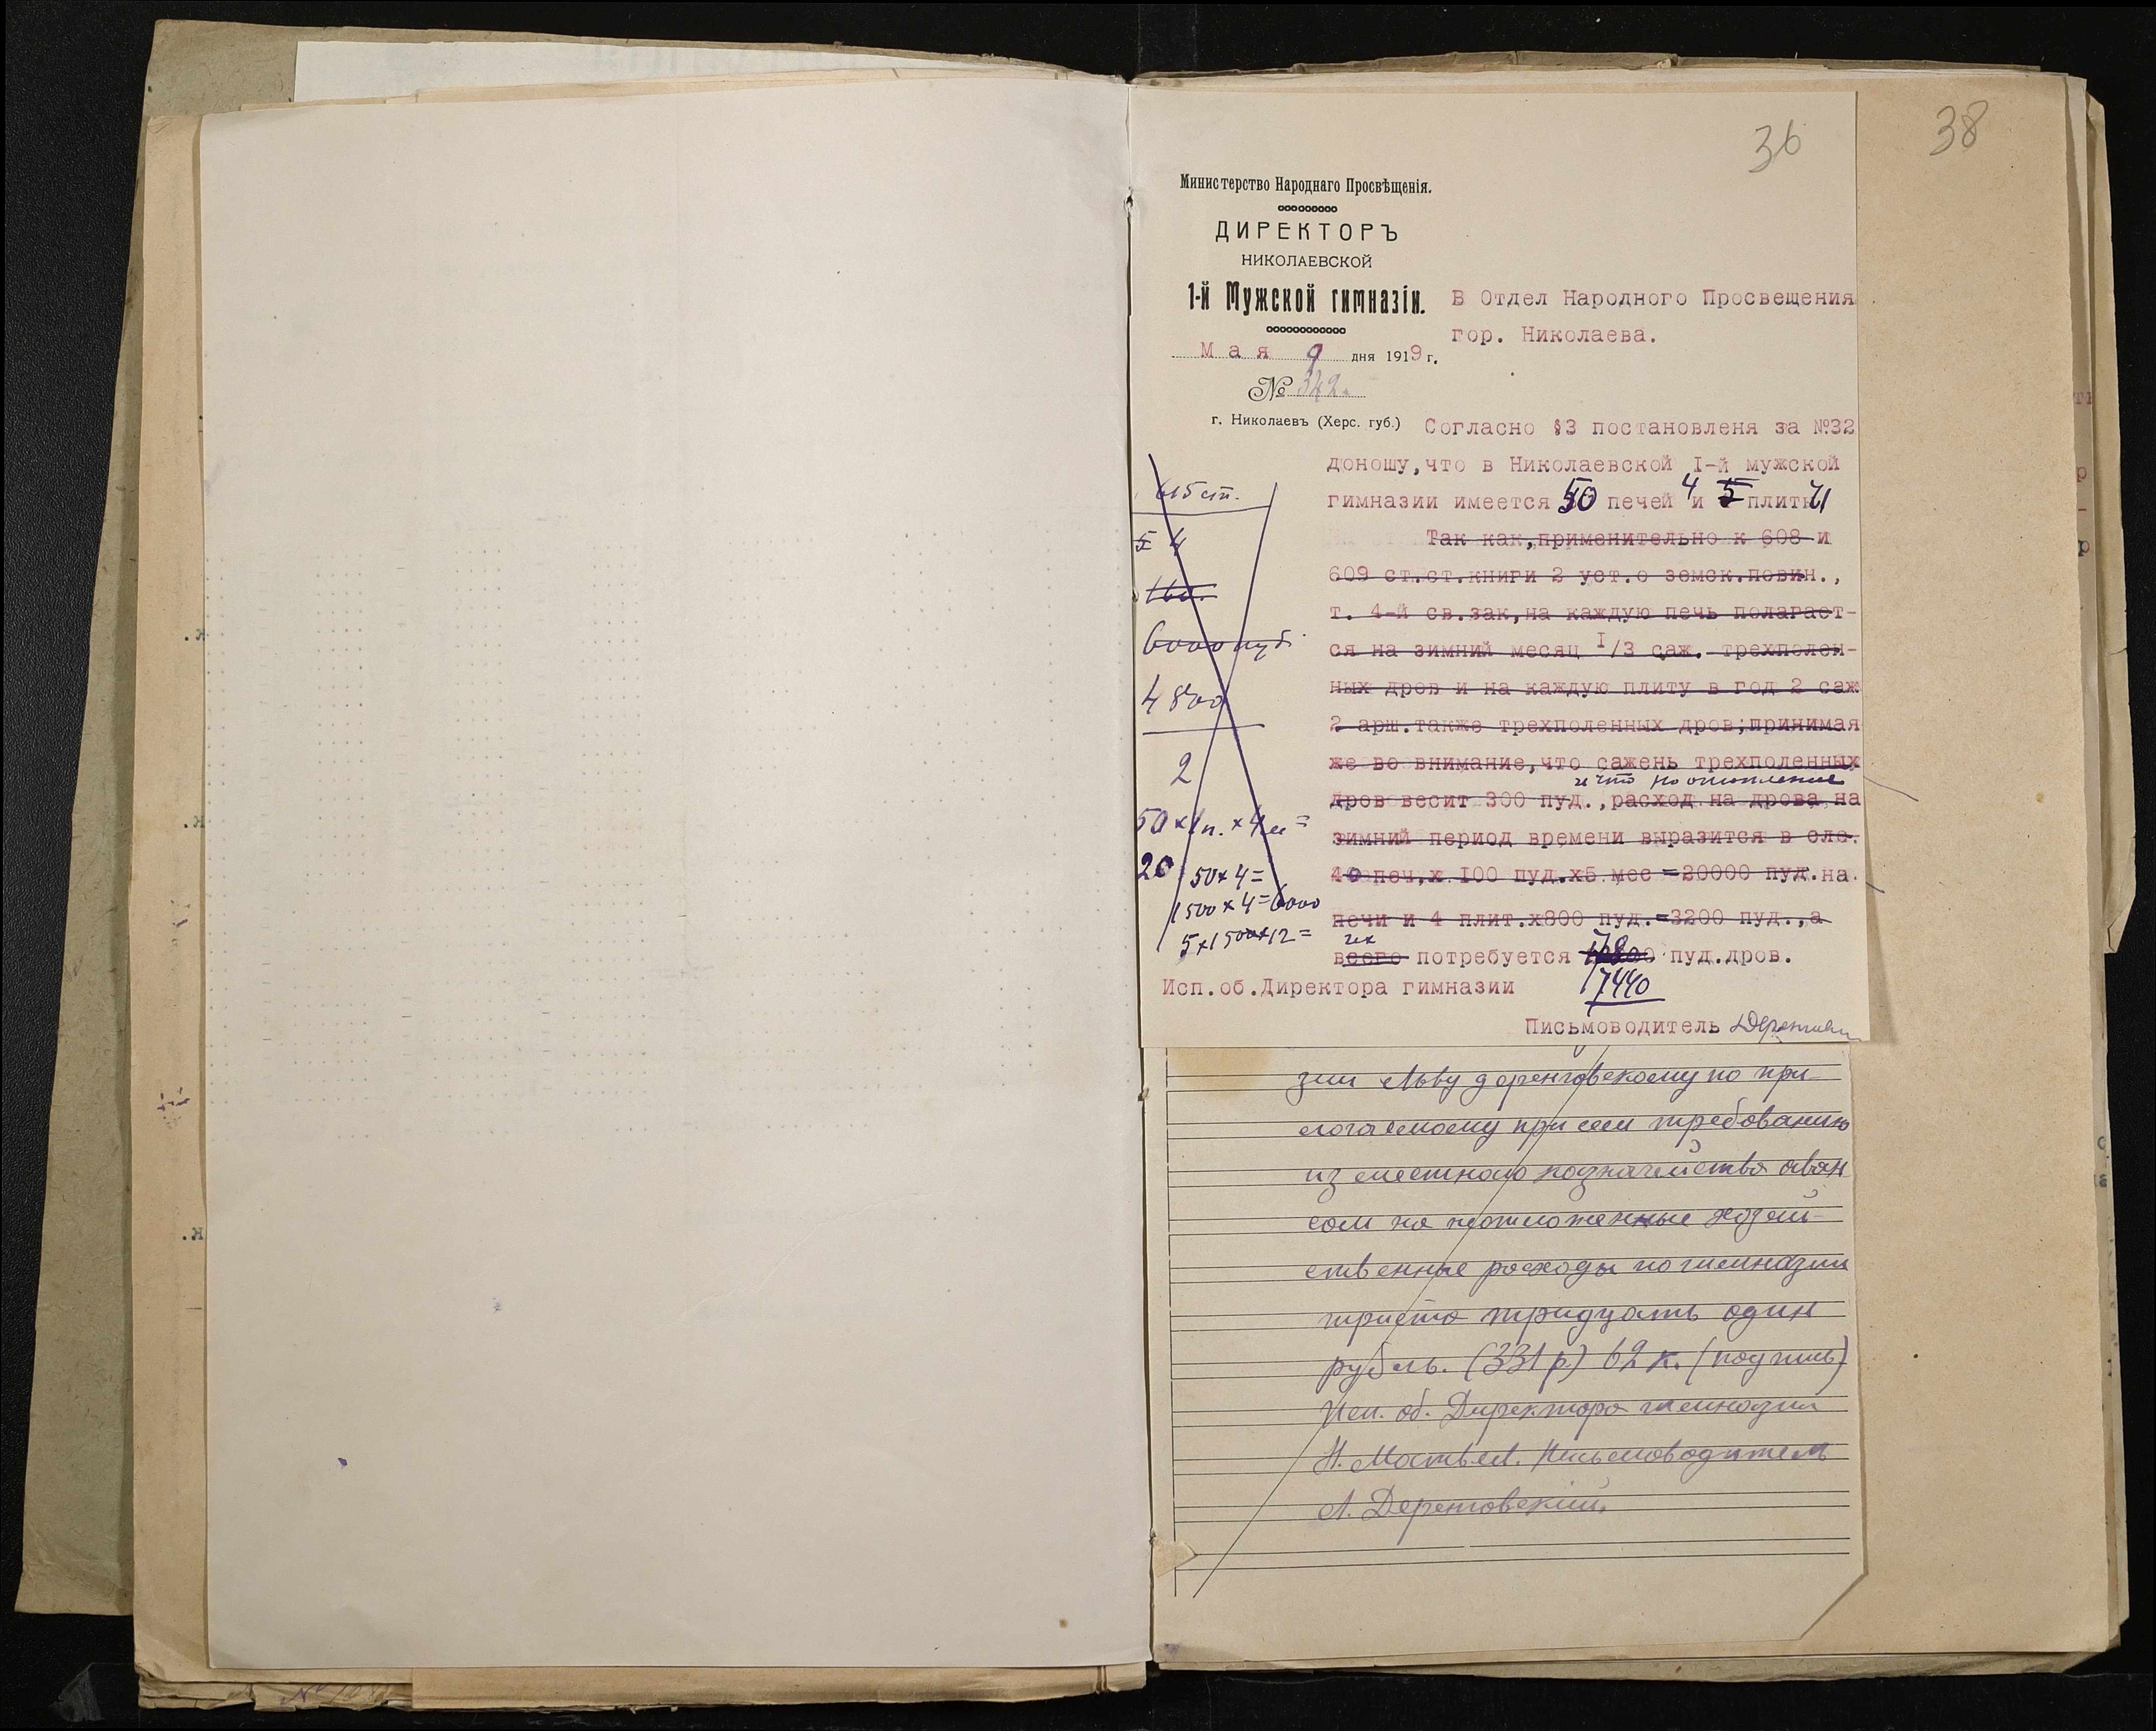 36
38
Министерство Народнаго Просвѣщенія.
ДИРЕКТОРЪ
НИКОЛАЕВСКОЙ
1-й Мужской гимназіи.
Мая 9 дня 1919 г.
№ 342.
г. Николаевъ (Херс. губ.)
В Отдел Народного Просвещения
гор. Николаева.
Согласно §3 постановленя за №32
доношу,что в Николаевской I-й мужской
гимназии имеется 50 печей 4 и 5 плиты
Так как,применительно к 608 и
609 ст.ст.книги 2 уст.о земск.повин.,
т. 4-й св.зак,на каждую печь полагает-
ся на зимний месяц I/3 саж. трехполен-
ных дров и на каждую плиту в год 2 саж
2 арш.также трехполенных дров;принимая
же во внимание,что сажень трехполенных
и что по отопление
дров весит 300 пуд.,расход на дрова на
зимний период времени выразится в сле.
40 печ.х I00 пуд.х5 мес =20000 пуд.на
печи и 4 плит.х800 пуд.=3200 пуд.,а
всего потребуется пуд.дров.
17440
Исп.об.Директора гимназии
Письмоводитель
615 ст.
5 4
6000 куб.
4800
2
50 × 1п. × 4м =
20 50 × 4 =
1500 × 4 = 6000
5×1500×12 =
зии Льву Деренговскому по при-
логаемому при сем требованию
из местного казначейства аван
сом на неотложенные хозяй-
ственные расходы по гимназии
триста тридцать один
рубль. (331 р) 62 к. (подпись)
Исп. об. Директора гимназии
Письмоводитель
Л. Деренговский.